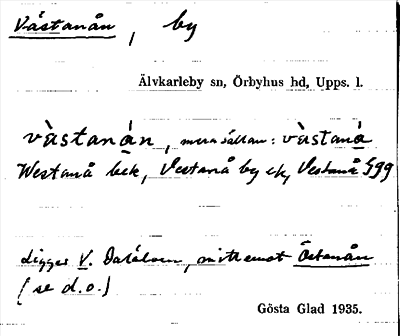 Västanån, by
Älvkarleby sn, Örbyhus hd, Upps. l.
västanán, mera sällan: västaná
Westanå bek, Vestanå by ek, Vestanå Jgg
Ligger V. Dalälven, mitt emot Östanån
(se d.o.)
Gösta Glad 1935.